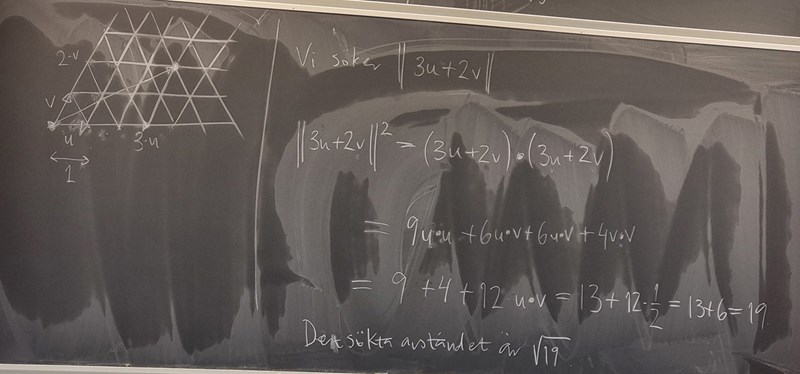 2·v
v
u
3·u
1
Vi söker ||3u+2v||
||3u+2v||² = (3u+2v)•(3u+2v)
= 9u•u + 6u•v + 6u•v + 4v•v
= 9 + 4 + 12·u•v = 13 + 12·1/2 = 13+6 = 19
Det sökta avståndet är √19